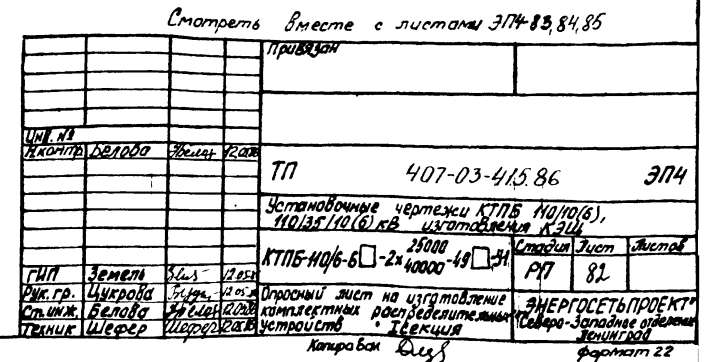 Смотреть вместе с листами ЭП4-83,84,85
Привязан
Инв. №
Н.контр Белова
ТП 407-03-415.86 ЭП4
Установочные чертежи КТПБ 110/10(6),
110/35/10(6) кВ изготовления КЭЩ
КТПБ-110/6-6□-2х 25000/40000-49□-У1
Стадия Лист Листов
РП 82
ГИП Земель
Рук.гр. Цукрова
Ст.инж. Белова
Техник Шефер
Опросный лист на изготовление
комплектных распределительных
устройств I секция
"ЭНЕРГОСЕТЬПРОЕКТ"
Северо-Западное отделение
Ленинград
Копировал
формат 22